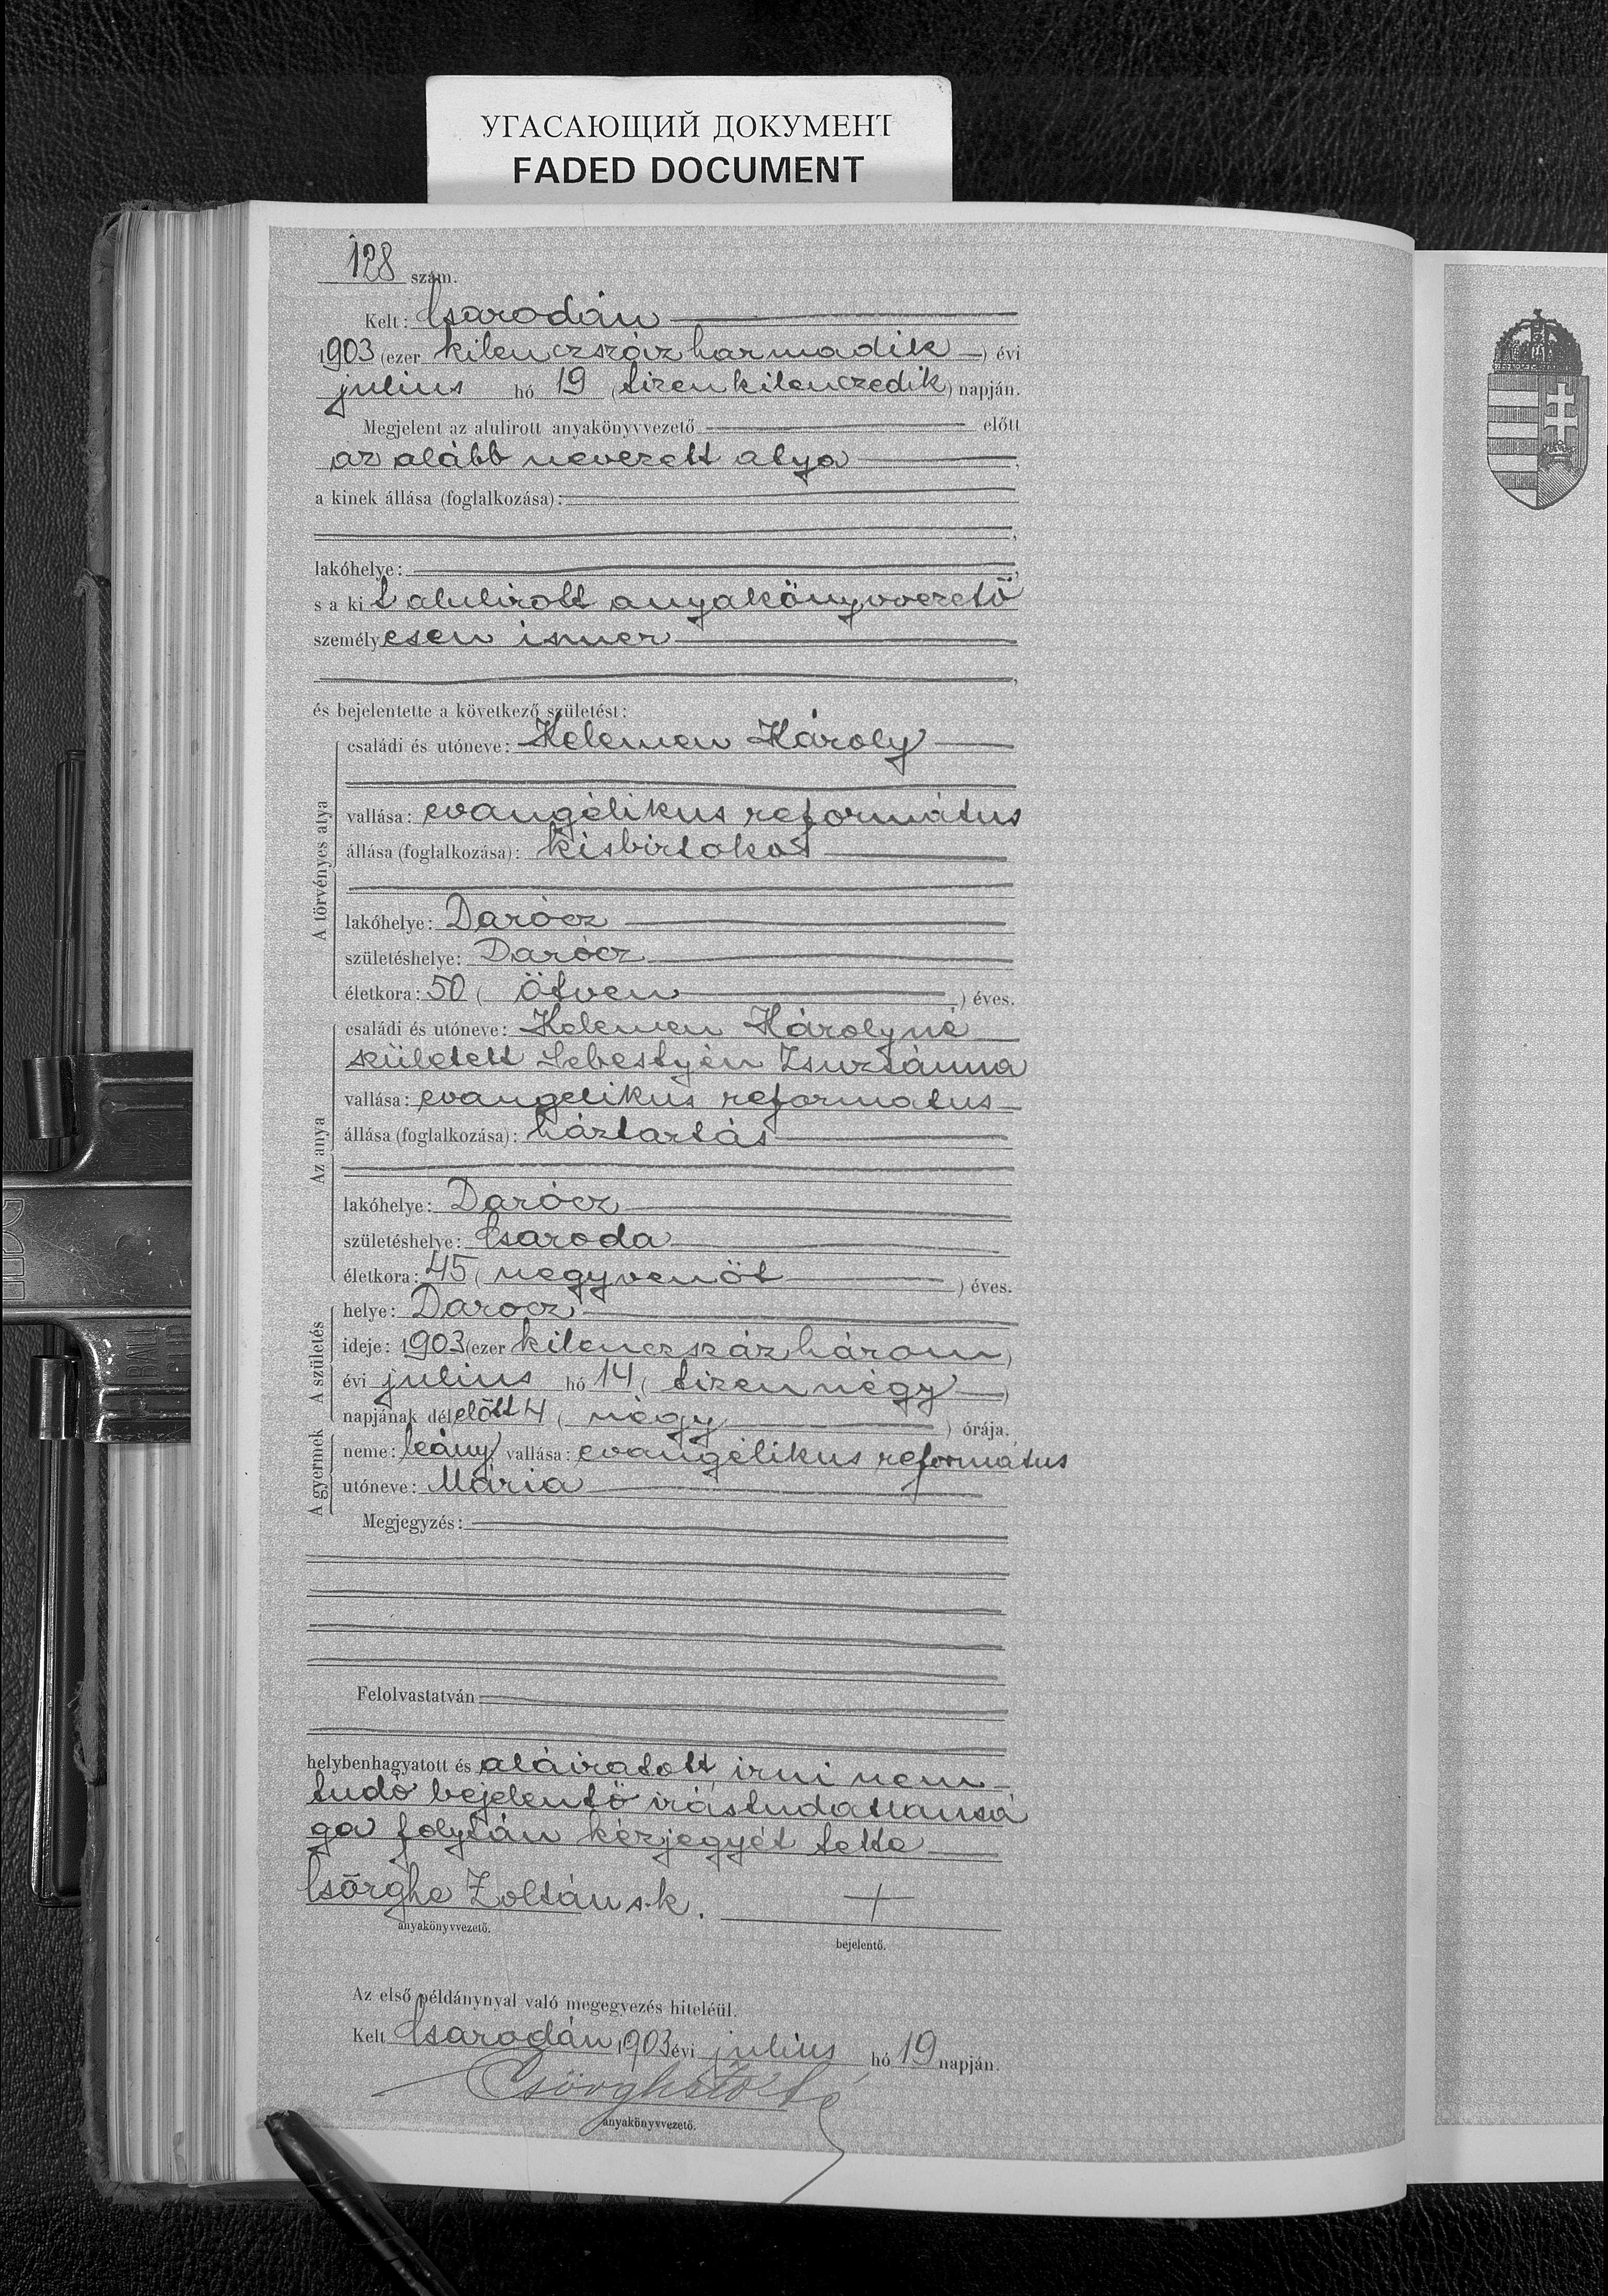 УГАСАЮЩИЙ ДОКУМЕНТ
FADED DOCUMENT
128 szám.
Kelt: Csarodán
1903 (ezer kilenczszázharmadik) évi
julius hó 19 (tizenkilenczedik) napján.
Megjelent az alulirott anyakönyvvezető előtt
az alább nevezett atya,
a kinek állása (foglalkozása):
,
lakóhelye:,
s a kit alulirott anyakönyvvezető
személyesen ismer
,
és bejelentette a következő születést:
A törvényes atya
családi és utóneve: Kelemen Károly
vallása: evangélikus református
állása (foglalkozása): kisbirtokos
lakóhelye: Darócz
születéshelye: Darócz
életkora: 50 (ötven) éves.
Az anya
családi és utóneve: Kelemen Károlyné
született Sebestyén Zsuzsánna
vallása: evangelikus reformatus
állása (foglalkozása): háztartás
lakóhelye: Darócz
születéshelye: Csaroda
életkora: 45 (negyvenöt) éves.
A születés
helye: Darocz
ideje: 1903 (ezer kilenczszázhárom)
évi julius hó 14 (tizennégy)
napjának délelőtt 4 (négy) órája.
A gyermek
neme: leány, vallása: evangélikus református
utóneve: Mária
Megjegyzés:
Felolvastatván
helybenhagyatott és aláiratott, irni nem
tudó bejelentő irástudatlansá
ga folytán kézjegyét tette
Csörghe Zoltán s.k. +
anyakönyvvezető.
bejelentő.
Az első példánynyal való megegyezés hiteléül.
Kelt Csarodán 1903 évi július hó 19 napján.
anyakönyvvezető.